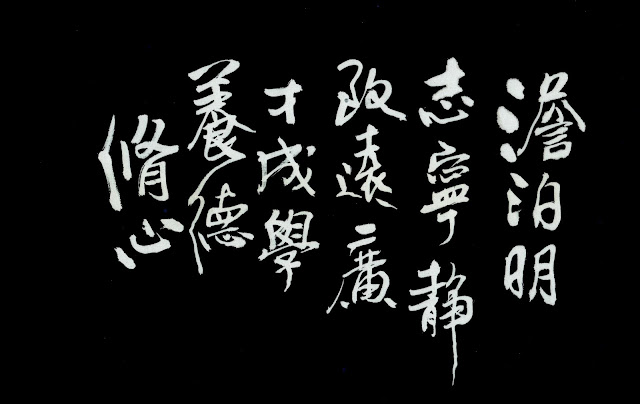 澹泊明
志寧靜
致遠廣
才成學
養德
脩心